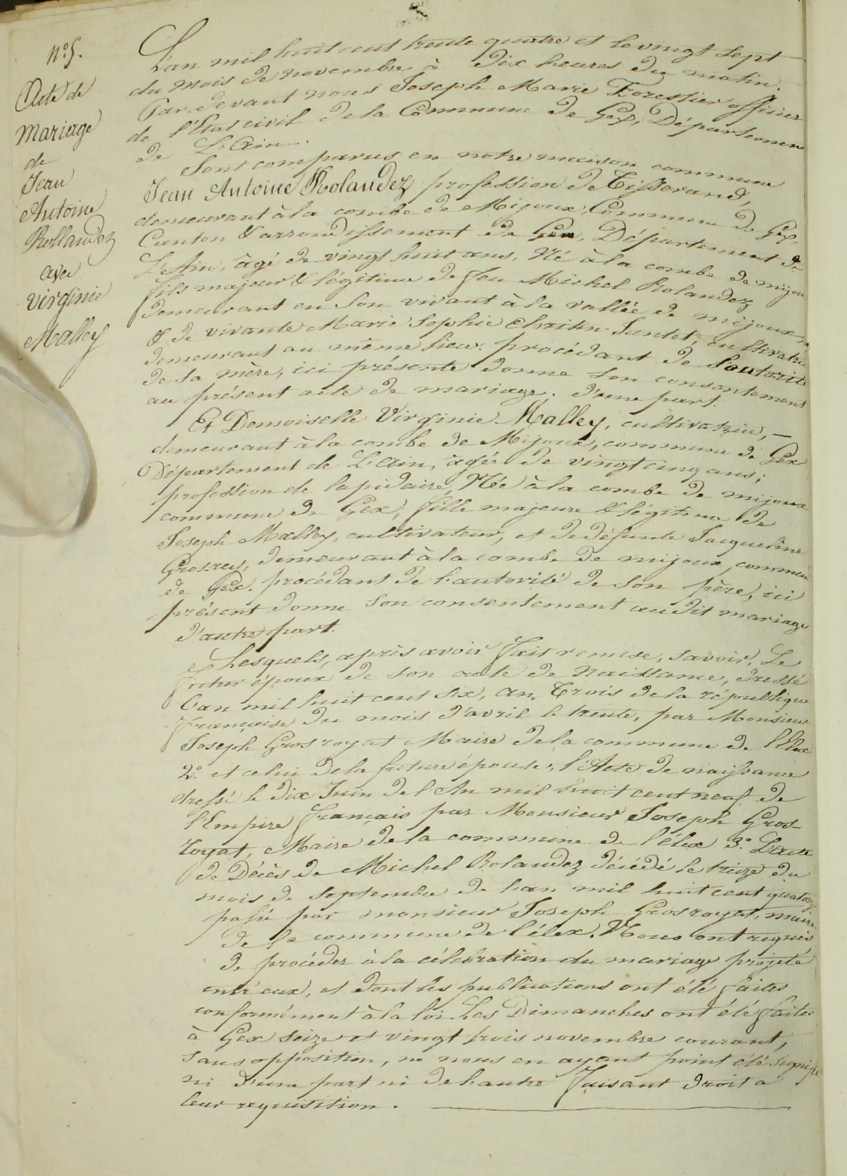 n°5.
Acte de
Mariage
de
Jean
Antoine
Rollandez
avec
Virginie
Malley
L'an mil huit cent trente quatre et le vingt sept
du mois de novembre à dix heures du matin.
Par devant nous Joseph Marie Forestier officier
de l'Etat civil de la Commune de Gex, Département
de L'Ain.
Sont comparus en notre maison commune
Jean Antoine Rolandez profession de Tisserand,
demeurant à la combe de Mijoux, Commune de Gex,
Canton & arrondissement de Gex, Département de
L'Ain, âgé de vingt huit ans. Né à la combe de mijoux
fils majeur & légitime de feu Michel Rolandez
demeurant en son vivant à la vallée de mijoux
& de vivante Marie Sophie cultivatrice
demeurant au même lieu, procédant de l'autorité
de sa mère, ici présente donne son consentement
au présent acte de mariage. d'une part.
Et Demoiselle Virginie Malley, cultivatrice, —
demeurant à la combe de Mijoux, commune de Gex
Département de L'Ain, agée de vingt cinq ans;
profession de lapidaire, Née à la combe de mijoux
commune de Gex, fille majeure & légitime de
Joseph Malley, cultivateur, et de défunte Jacqueline
Grosrey, demeurant à la combe de mijoux, commune
de Gex. procédant de l'autorité de son père, ici
présent donne son consentement au dit mariage
d'autre part.
Lesquels, après avoir fait remise, savoir, Le
futur époux de son acte de naissance, dressé
l'an mil huit cent six, an Trois de la république
française du mois d'avril le trente, par Monsieur
Joseph Grosroyat Maire de la commune de l'élex
2° et celui de la future épouse, l'Acte de naissance
dressé le dix Juin de l'An mil huit cent neuf de
l'Empire français par Monsieur Joseph Gros-
royat, Maire de la commune de l'élex 3° L'acte
de Décès de Michel Rolandez décédé le treize du
mois de Septembre de l'an mil huit cent quatorze
passé par monsieur Joseph Grosroyat, maire
de la commune de l'élex, Nous ont requis
de procéder à la célébration du mariage projeté
entr'eux, et dont les publications ont été faites
conformément à la loi. Les Dimanches ont été faites
à Gex seize et vingt trois novembre courant,
sans opposition, ne nous en ayant point été signifié
ni d'une part ni de l'autre faisant droit à
leur requisition.